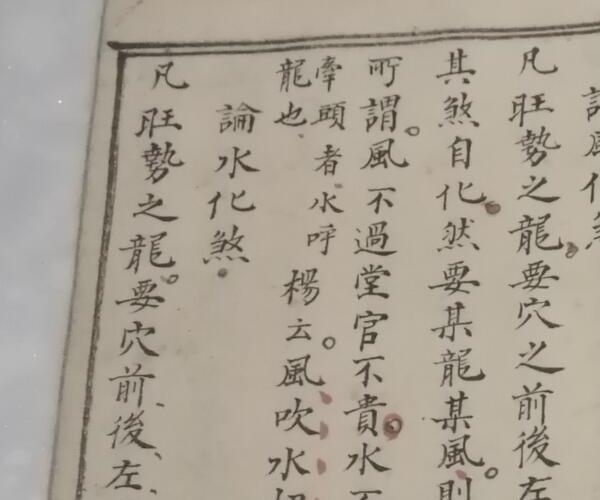 論風化煞
凡旺勢之龍。要穴之前後左
其煞自化。然要某龍某風。則
所謂。風不過堂官不貴。水不
牽頭者水呼
龍也
楊云。風吹水
論水化煞
凡旺勢之龍。要穴前、後、左、